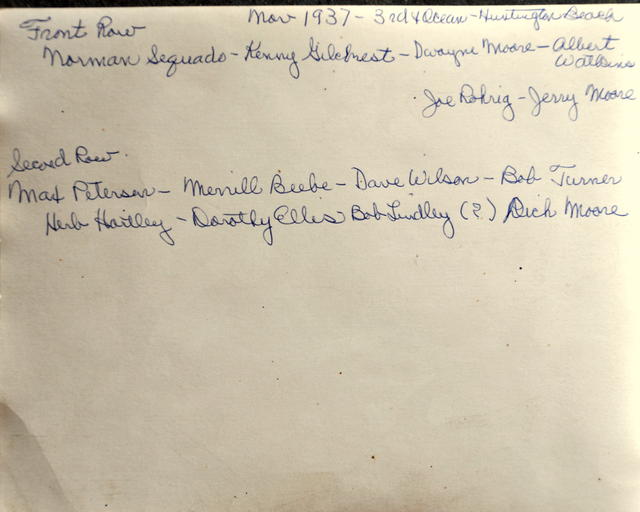 Nov 1937 - 3rd & Ocean - Huntington Beach
Front Row
Norman Sequado - Kenny Gilchrest - Dwayne Moore - Albert
Watkins
Joe Rohrig - Jerry Moore
Second Row
Max Peterson - Merrill Beebe - Dave Wilson - Bob Turner
Herb Hartley - Dorothy Ellis Bob Lindley (?) Dick Moore